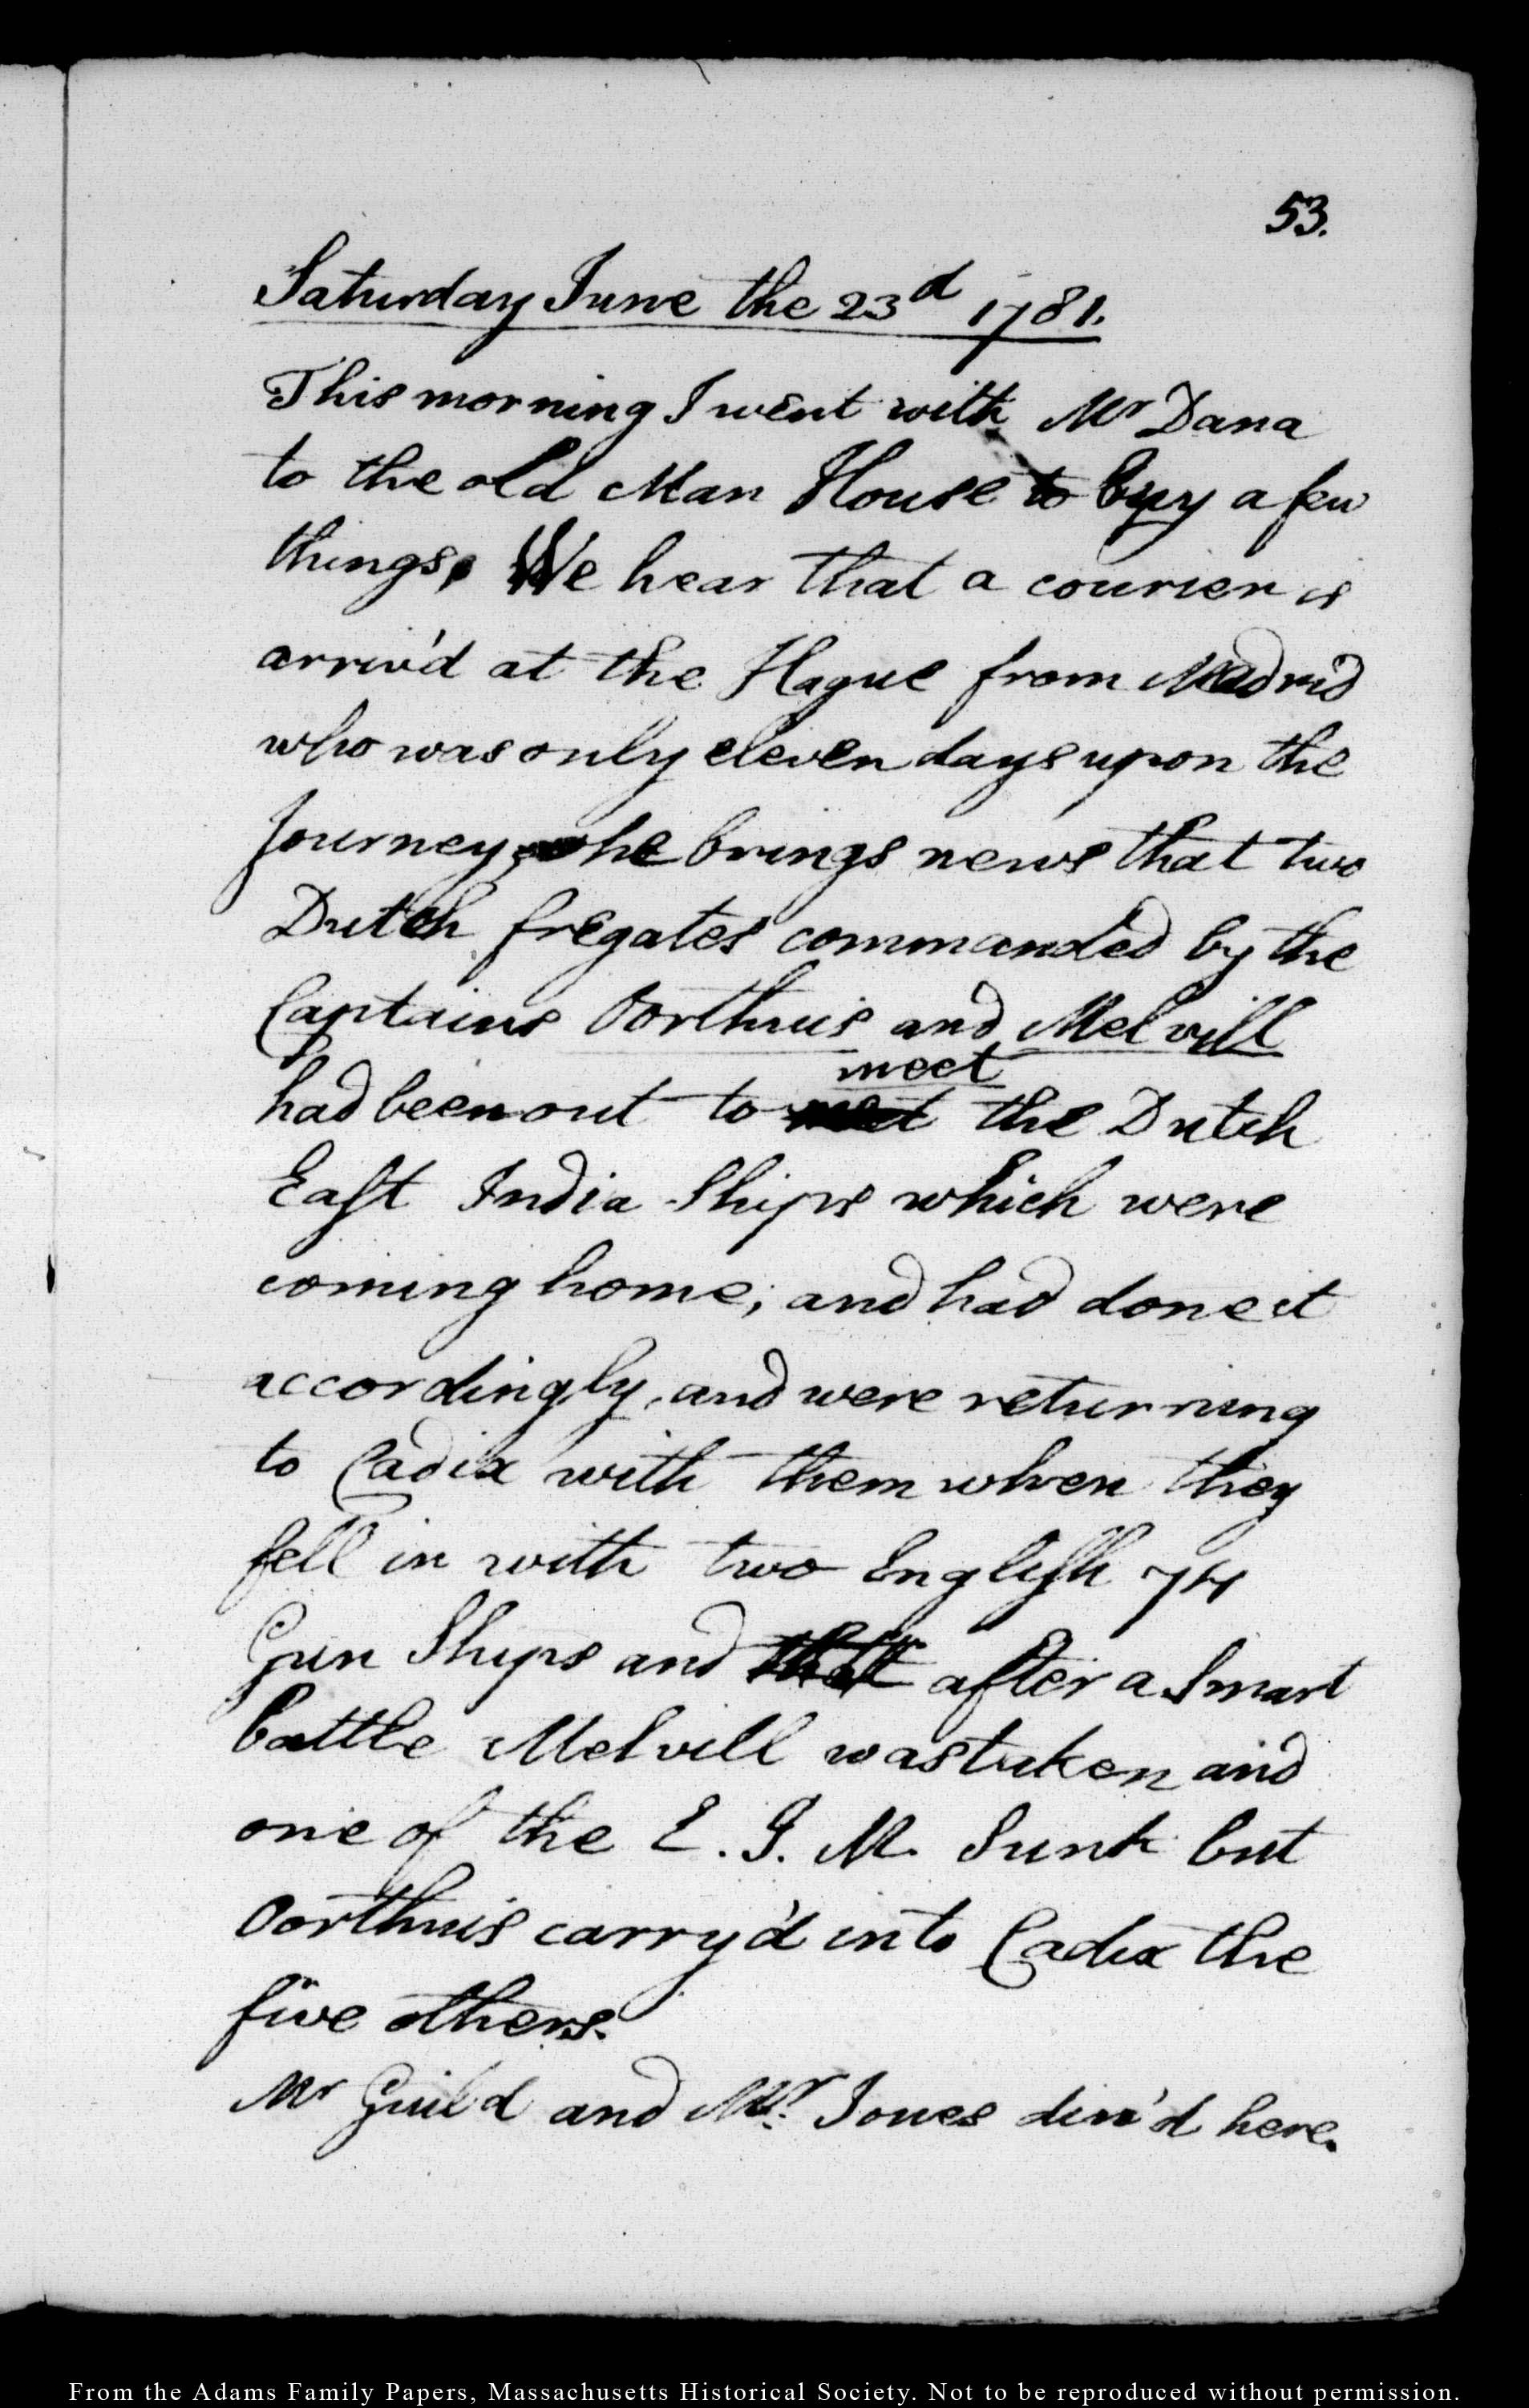 53.
Saturday June the 23d 1781.
This morning I went with Mr Dana
to the old Man House to buy a few
things. We hear that a courier is
arriv'd at the Hague from Madrid
who was only eleven days upon the
Journey, he brings news that two
Dutch fregates commanded by the
Captains Oorthuis and Melvill
meet
had been out to the Dutch
East India Ships which were
coming home; and had done it
accordingly, and were returning
to Cadix with them when they
fell in with two English 74
Gun Ships and after a Smart
battle Melvill was taken and
one of the E. I. M. Sunk but
Oorthuis carry'd into Cadix the
five others.
Mr Guild and Mr. Jones din'd here.
From the Adams Family Papers, Massachusetts Historical Society. Not to be reproduced without permission.